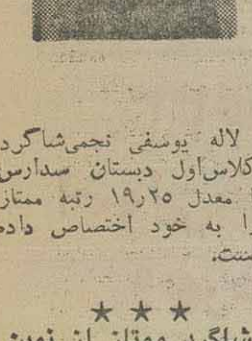 لاله یوسفی نجمی‌شاگرد
کلاس‌اول دبستان سدارس
معدل ۱۹٫۲۵ رتبه ممتاز
را به خود اختصاص داده
است.
★ ★ ★